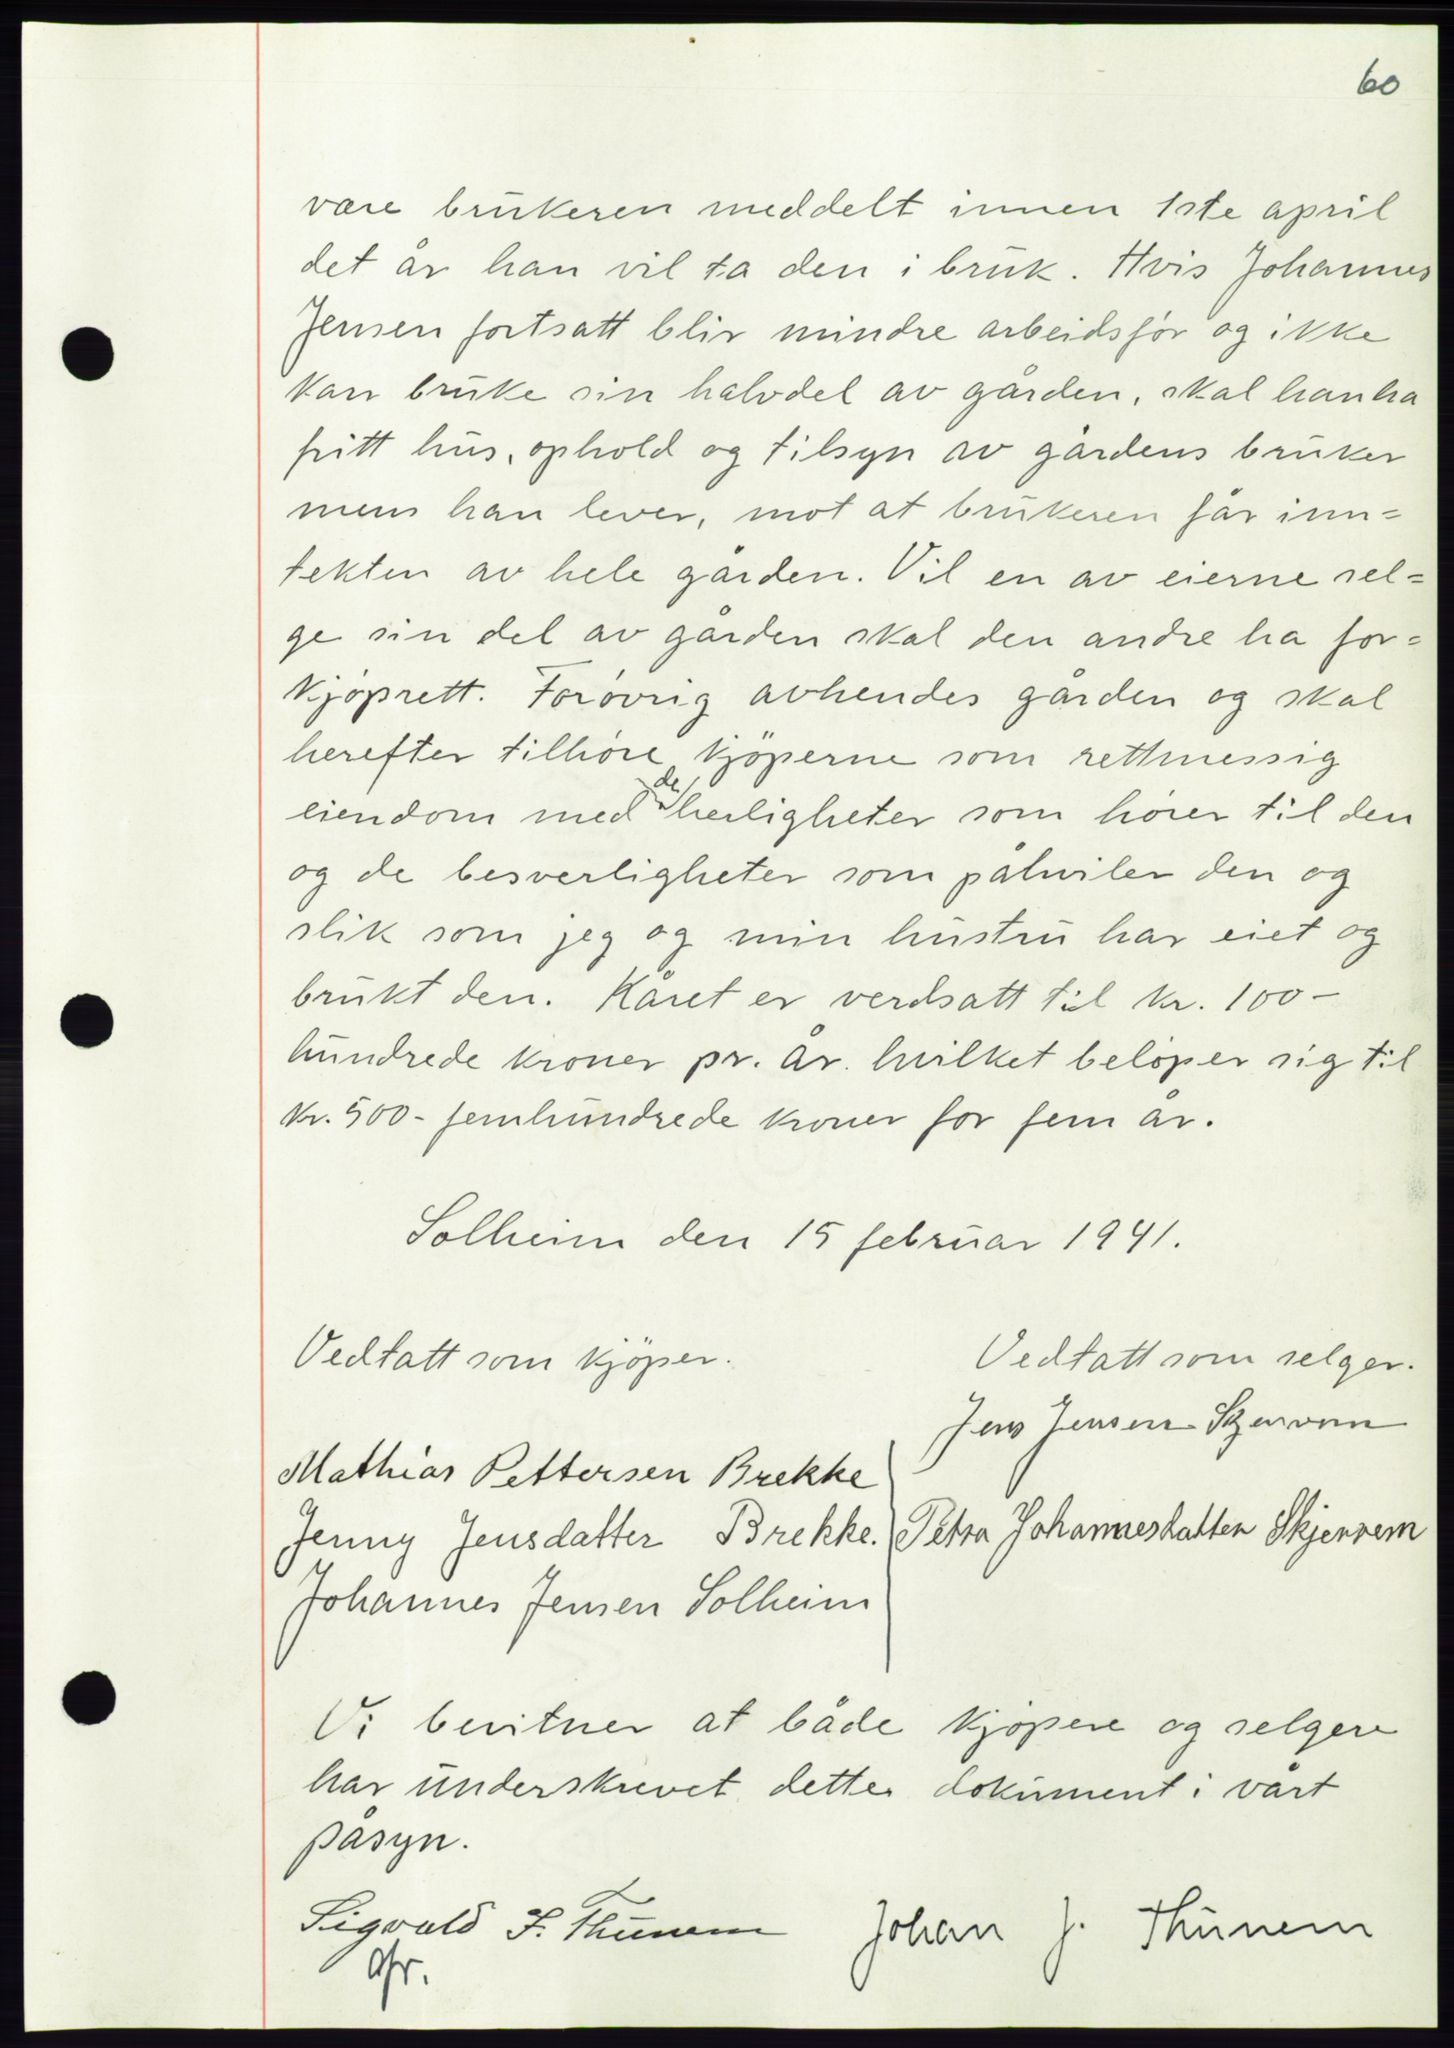 60
være brukeren meddelt innen 1ste april
det år han vil ta den i bruk. Hvis Johannes
Jensen fortsatt blir mindre arbeidsför og ikke
kan bruke sin halvdel av gården, skal han ha
fritt hus, ophold og tilsyn av gårdens bruker
mens han lever, mot at brukeren får inn=
tekten av hele gården. Vil en av eierne sel=
ge sin del av gården skal den andre ha for=
kjöprett. Forövrig avhendes gården og skal
herefter tilhöre kjöperne som rettmessig
eiendom med de herligheter som hörer til den
og de besverligheter som påhviler den og
slik som jeg og min hustru har eiet og
brukt den. Kåret er verdsatt til kr. 100-
hundrede kroner pr. år. hvilket belöper sig til
kr. 500- femhundrede kroner for fem år.
Solheim den 15 februar 1941.
Vedtatt som kjöper. Vedtatt som selger.
Jens Jensen Skjervem
Mathias Pettersen Brekke
Jenny Jensdatter Brekke. Petra Johannesdatter Skjervem
Johannes Jensen Solheim
Vi bevitner at både kjöpere og selgere
har underskrevet dette dokument i vårt
påsyn.
Sigvald J. Thunem Johan J. Thunem